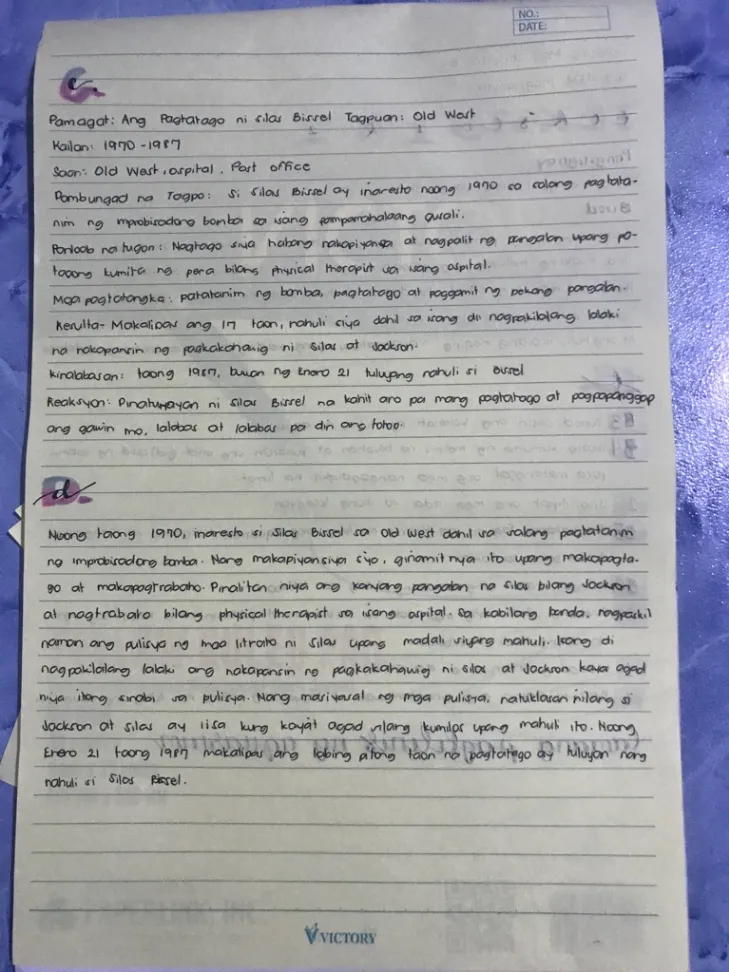 NO.:
DATE:
c.
Pamagat: Ang Pagtatago ni Silas Bissel Tagpuan: Old West
Kailan: 1970 - 1987
Saan: Old West, ospital, Post office
Pambungad na Tagpo: Si Silas Bissel ay inaresto noong 1970 sa salang pagtata-
nim ng improbisadong bomba sa isang pamparahalaang gusali.
Panloob na tugon: Nagtago siya habang nakapiyansa at nagpalit ng pangalan upang pa-
tagong kumita ng pera bilang physical therapist sa isang ospital.
Mga pagtatangka: patatanim ng bomba, pagtatago at paggamit ng pekeng pangalan.
Resulta- Makalipas ang 17 taon, nahuli siya dahil sa isang di nagpakilalang lalaki
na nakapansin ng pagkakahawig ni Silas at Jackson.
Kinalabasan: taong 1987, buwan ng Enero 21 tuluyang nahuli si Bissel
Reaksyon: Pinatunayan ni Silas Bissel na kahit ano pa mang pagtatago at pagpapanggap
ang gawin mo, lalabas at lalabas pa din ang totoo.
d.
Noong taong 1970, inaresto si Silas Bissel sa Old West dahil sa salang pagtatanim
ng improbisadong bomba. Nang makapiyansiya siya, ginamit nya ito upang makapagta-
go at makapagtrabaho. Pinalitan niya ang kanyang pangalan na Silas bilang Jackson
at nagtrabaho bilang physical therapist sa isang ospital. Sa kabilang banda, nagpaskil
naman ang pulisya ng mga litrato ni Silas upang madali siyang mahuli. Isang di
nagpakilalang lalaki ang nakapansin ng pagkakahawig ni Silas at Jackson kaya agad
niya itong sinabi sa pulisya. Nang masiyasat ng mga pulisya, natuklasan nilang si
Jackson at Silas ay iisa kung kaya't agad silang kumilos upang mahuli ito. Noong
Enero 21 taong 1987 makalipas ang labing pitong taon na pagtatago ay tuluyan nang
nahuli si Silas Bissel.
VICTORY